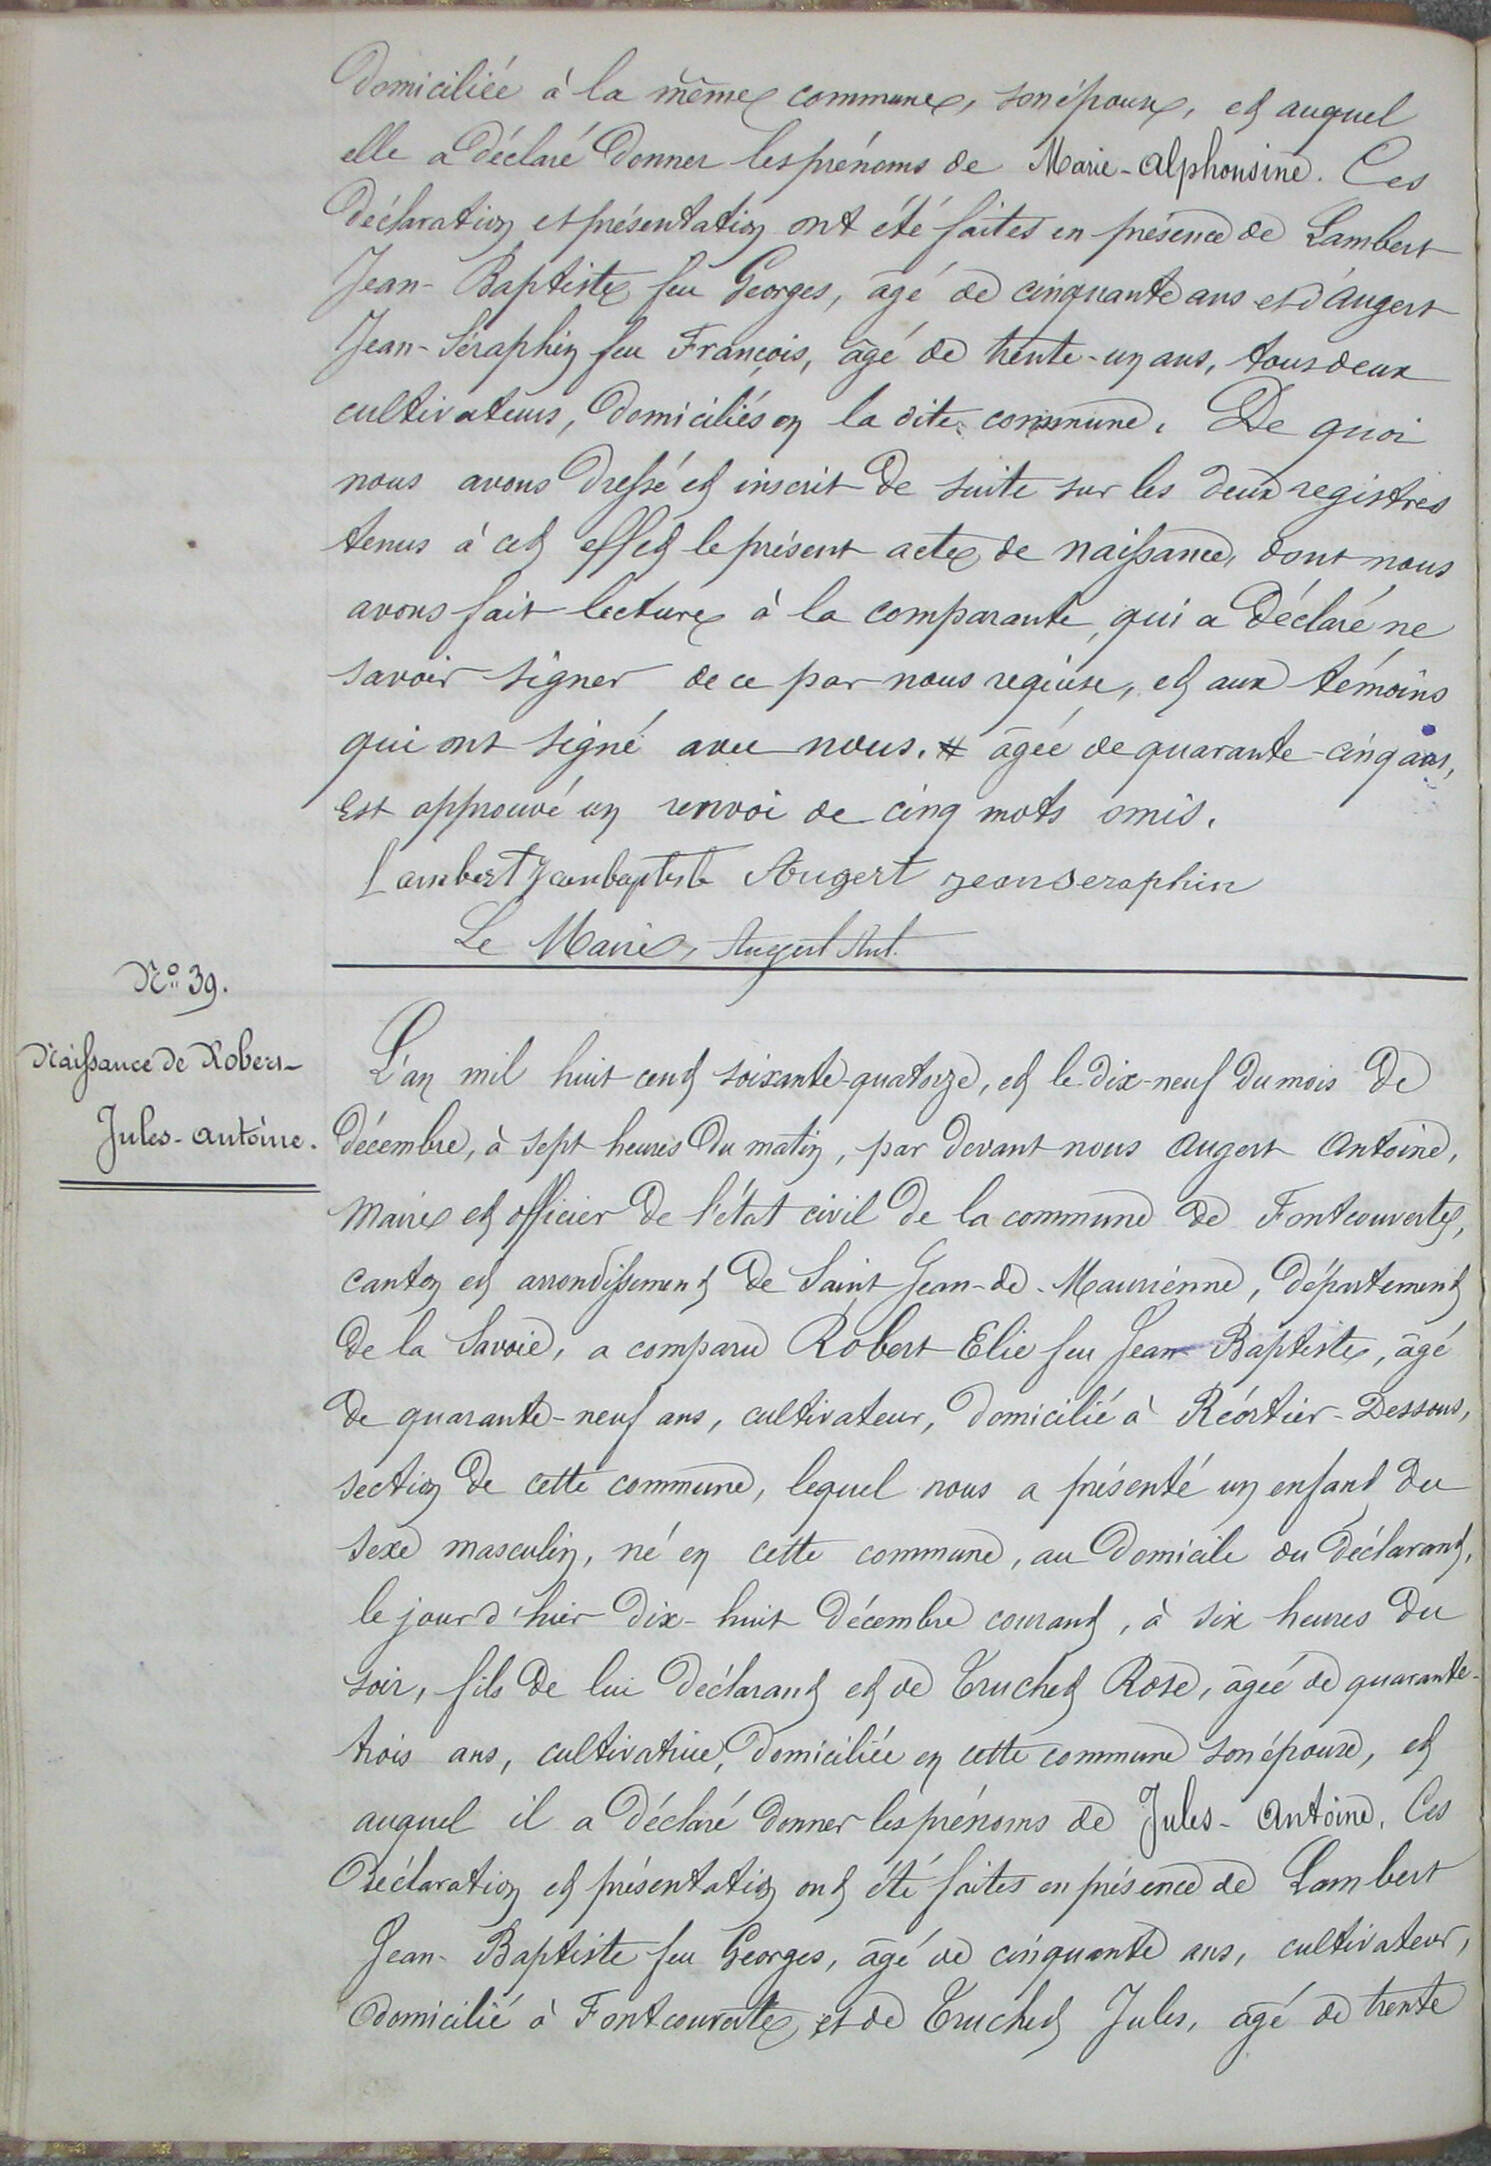 domiciliée à la même commune, son époux, et auquel
elle a déclaré donner les prénoms de Marie-Alphonsine. Ces
déclaration et présentation ont été faites en présence de Lambert
Jean-Baptiste feu Georges, âgé de cinquante ans et d'Augert
Jean-Séraphin feu François, âgé de trente-un ans, tous deux
cultivateurs, domiciliés en la dite commune. De quoi
nous avons dressé et inscrit de suite sur les deux registres
tenus à cet effet le présent acte de naissance, dont nous
avons fait lecture à la comparante, qui a déclaré ne
savoir signer de ce par nous requise, et aux témoins
qui ont signé avec nous. # âgée de quarante-cinq ans,
Est approuvé un renvoi de cinq mots omis.
Lambert jeanbaptiste Augert jeanseraphin
Le Maire, Augert Ant.
No 39.
Naissance de Robert
Jules-Antoine.
L'an mil huit cent soixante-quatorze, et le dix-neuf du mois de
décembre, à sept heures du matin, par devant nous Augert Antoine,
Maire et officier de l'état civil de la commune de Fontcouverte,
canton et arrondissement de Saint Jean-de-Maurienne, département
de la Savoie, a comparu Robert Elie feu Jean Baptiste, âgé
de quarante-neuf ans, cultivateur, domicilié à Réortier-Dessous,
section de cette commune, lequel nous a présenté un enfant du
sexe masculin, né en cette commune, au domicile du déclarant,
le jour d'hier dix-huit décembre courant, à six heures du
soir, fils de lui déclarant et de Truchet Rose, âgée de quarante-
trois ans, cultivatrice, domiciliée en cette commune son épouse, et
auquel il a déclaré donner les prénoms de Jules-Antoine. Ces
déclaration et présentation ont été faites en présence de Lambert
Jean-Baptiste feu Georges, âgé de cinquante ans, cultivateur,
domicilié à Fontcouverte, et de Truchet Jules, âgé de trente